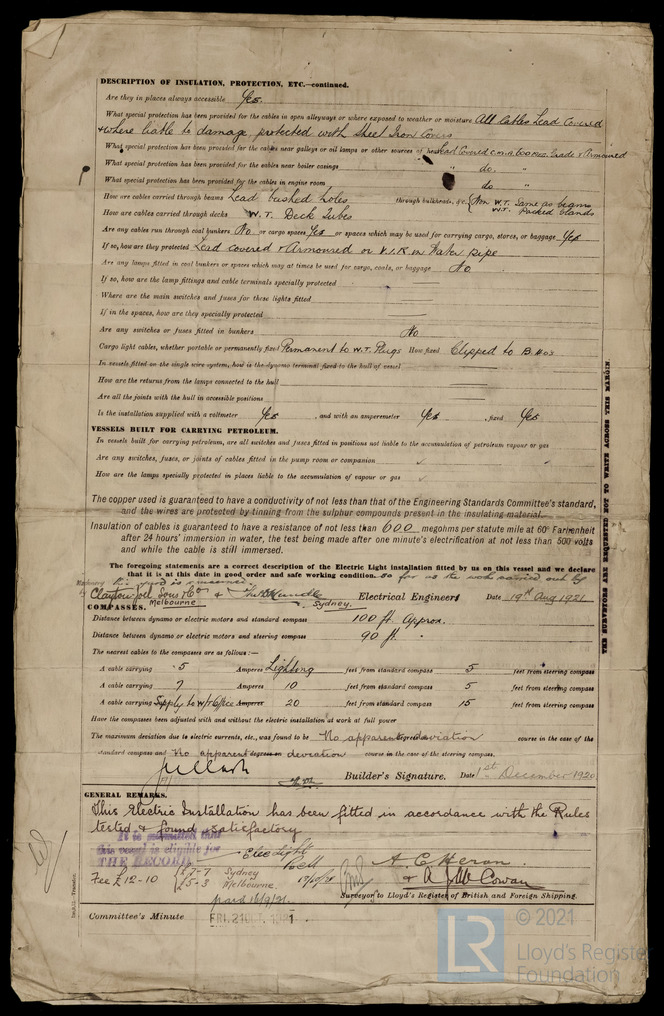 DESCRIPTION OF INSULATION, PROTECTION, ETC.—continued.
Are they in places always accessible Yes.
What special protection has been provided for the cables in open alleyways or where exposed to weather or moisture All Cables Lead Covered
& where liable to damage protected with Sheet Iron Covers
What special protection has been provided for the cables near galleys or oil lamps or other sources of heat Lead Covered C.M.A. 600 Meg. Grade & Armoured
What special protection has been provided for the cables near boiler casings " do. "
What special protection has been provided for the cables in engine room " do "
How are cables carried through beams Lead bushed holes through bulkheads, &c. Non W.T. Same as beams
W.T. Packed Glands
How are cables carried through decks W.T. Deck Tubes
Are any cables run through coal bunkers No or cargo spaces Yes or spaces which may be used for carrying cargo, stores, or baggage Yes
If so, how are they protected Lead covered & Armoured or V.I.R. in Water Pipe
Are any lamps fitted in coal bunkers or spaces which may at times be used for cargo, coals, or baggage No
If so, how are the lamp fittings and cable terminals specially protected
Where are the main switches and fuses for these lights fitted
If in the spaces, how are they specially protected
Are any switches or fuses fitted in bunkers No
Cargo light cables, whether portable or permanently fixed Permanent to W.T. Plugs How fixed Clipped to B.Hds
In vessels fitted on the single wire system, how is the dynamo terminal fixed to the hull of vessel
How are the returns from the lamps connected to the hull
Are all the joints with the hull in accessible positions
Is the installation supplied with a voltmeter Yes , and with an amperemeter Yes , fixed Yes
VESSELS BUILT FOR CARRYING PETROLEUM.
In vessels built for carrying petroleum, are all switches and fuses fitted in positions not liable to the accumulation of petroleum vapour or gas
Are any switches, fuses, or joints of cables fitted in the pump room or companion
How are the lamps specially protected in places liable to the accumulation of vapour or gas
The copper used is guaranteed to have a conductivity of not less than that of the Engineering Standards Committee's standard,
and the wires are protected by tinning from the sulphur compounds present in the insulating material.
Insulation of cables is guaranteed to have a resistance of not less than 600 megohms per statute mile at 60° Farenheit
after 24 hours' immersion in water, the test being made after one minute's electrification at not less than 500 volts
and while the cable is still immersed.
The foregoing statements are a correct description of the Electric Light installation fitted by us on this vessel and we declare
that it is at this date in good order and safe working condition. so far as the work carried out by
the yard is concerned.
Clayton Joel Sons & Co & Electrical Engineers Date 19th Aug 1921
Melbourne Sydney.
COMPASSES.
Distance between dynamo or electric motors and standard compass 100 ft. Approx.
Distance between dynamo or electric motors and steering compass 90 ft. "
The nearest cables to the compasses are as follows:—
A cable carrying .5 Amperes Lighting feet from standard compass 5 feet from steering compass
A cable carrying 7 Amperes 10 feet from standard compass 5 feet from steering compass
A cable carrying Supply to W/T Office Amperes 20 feet from standard compass 15 feet from steering compass
Have the compasses been adjusted with and without the electric installation at work at full power
The maximum deviation due to electric currents, etc., was found to be No apparent degrees deviation course in the case of the
standard compass and No apparent degrees on deviation course in the case of the steering compass.
Builder's Signature. Date 1st December 1920
GENERAL REMARKS.
This Electric Installation has been fitted in accordance with the Rules
tested & found satisfactory
It is submitted that
this vessel is eligible for
THE RECORD. Elec Light
Fee £12-10 £7-7 Sydney
£5-3 Melbourne.
paid 16/9/21.
A. C. Heron.
& A. J. McCowan
Surveyor to Lloyd's Register of British and Foreign Shipping.
Committee's Minute FRI. 21 OCT. 1921
© 2021
LR Lloyd's Register
Foundation